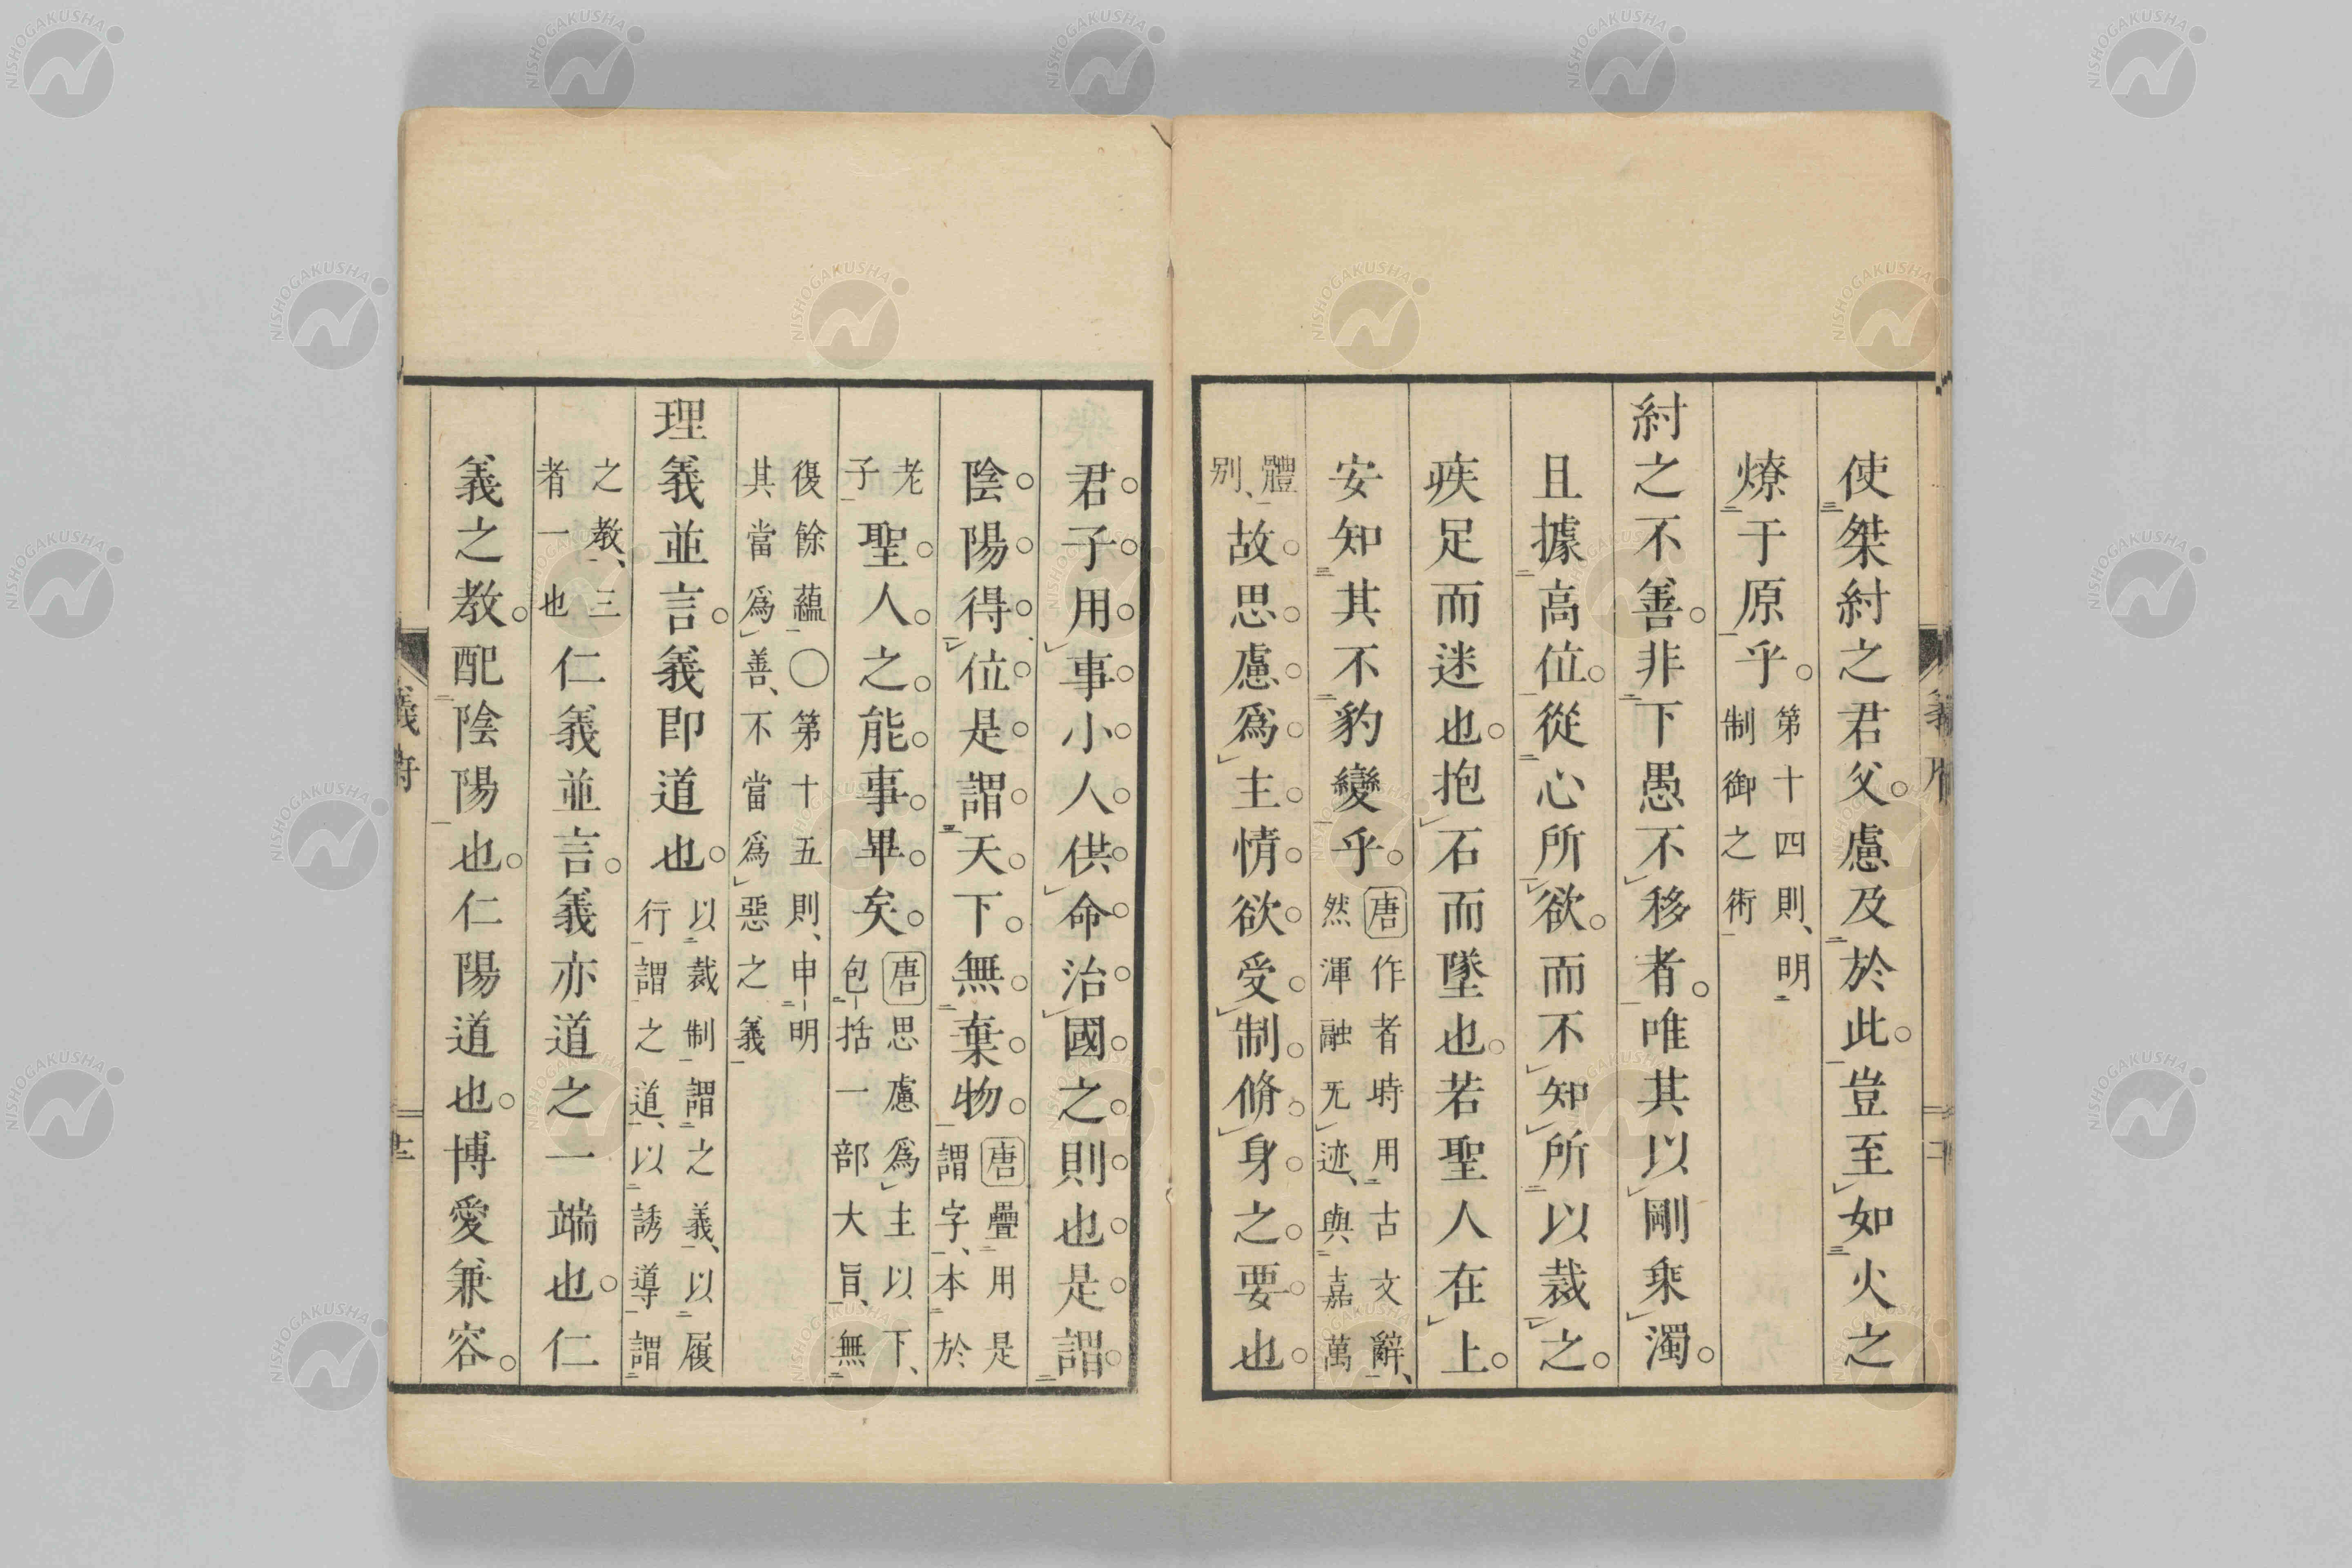 使桀紂之君父。慮及於此。豈至如火之
燎于原乎。第十四則、明
制御之術
紂之不善。非下愚不移者。唯其以剛乘濁。
且據高位。從心所欲。而不知所以裁之。
疾足而迷也。抱石而墜也。若聖人在上。
安知其不豹變乎。唐作者時用古文辭、
然渾融无迹、與嘉萬
體
别、故思慮爲主情欲受制脩身之要也
君子用事小人供命治國之則也是謂
陰陽得位是謂天下無棄物唐疊用是
謂字、本於
老
子聖人之能事畢矣唐思慮爲主以下、
包括一部大旨、無
復餘蘊〇第十五則、申明
其當爲善、不當爲惡之義
理義並言。義即道也。以裁制謂之義、以履
行謂之道、以誘導謂
之教、三
者一也仁義並言。義亦道之一端也。仁
義之教。配陰陽也。仁陽道也。博愛兼容。
義府
NISHOGAKUSHA